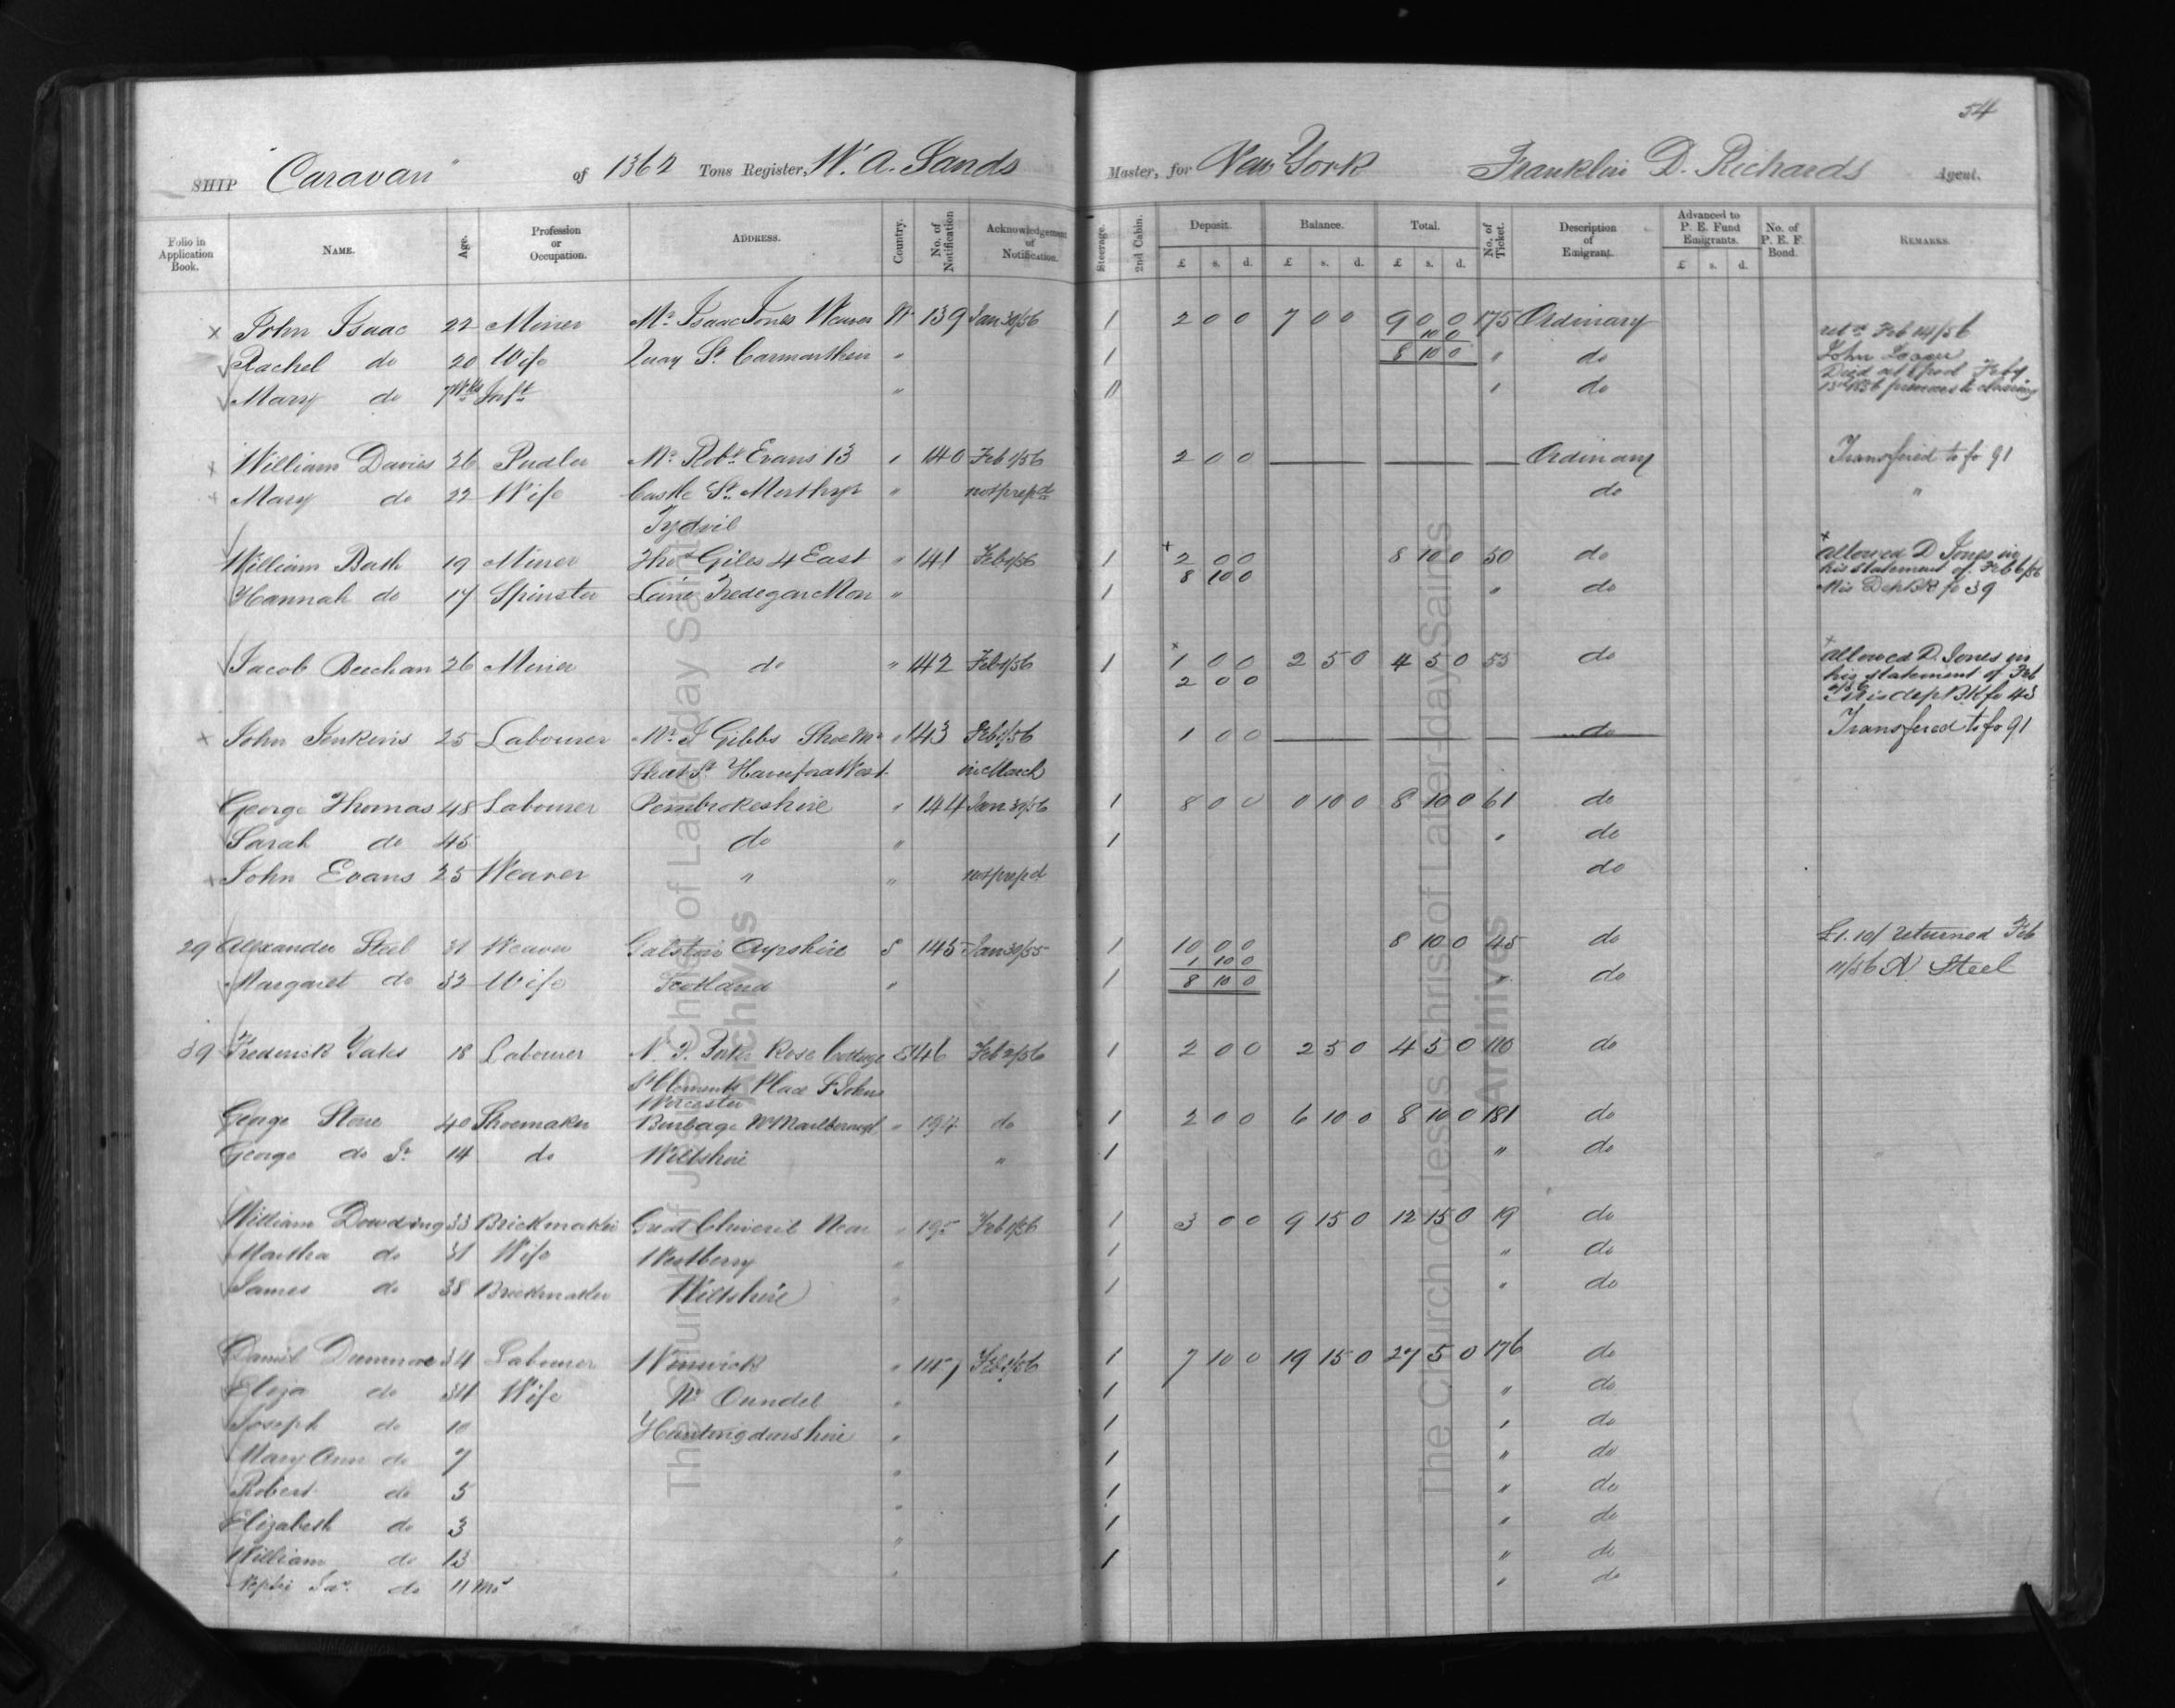 54
SHIP "Caravan" of 1362 Tons Register, W. A. Sands Master, for New York Franklin D. Richards Agent.
Folio in Application Book. NAME. Age. Profession or Occupation. ADDRESS. Country. No. of Notification Acknowledgement of Notification. Steerage. 2nd Cabin. Deposit. Balance. Total. No. of Ticket. Description of Emigrant. Advanced to P. E. Fund Emigrants. No. of P. E. F. Bond. REMARKS.
£ s. d. £ s. d. £ s. d. £ s. d.
x John Isaac 22 Miner Mr Isaac Jones Weaver W 139 Jan 30/56 1 2 0 0 7 0 0 9 0 0 175 Ordinary Feb 14/56
10 0
Rachel do 20 Wife Quay St Carmarthen " 1 8 10 0 " do John Isaac
Mary do 7 Wks Inft " 11 " do Died at L'pool Feby 13th 1856 previous to clearing
x William Davies 26 Pudler Mr Robt Evans 13 " 140 Feb 1/56 2 0 0 Ordinary Transfered to fo 91
x Mary do 22 Wife Castle St Merthyr " not prepd do "
Tydvil
William Bath 19 Miner Thos Giles 4 East " 141 Feb 1/56 1 x 2 0 0 8 10 0 50 do x allowed D Jones in his statement of Feb 6/56
8 10 0
Hannah do 17 Spinster Lane Tredegar Mon " 1 " do His Dep BK fo 39
Jacob Beechan 26 Miner do " 142 Feb 1/56 1 x 1 0 0 2 5 0 4 5 0 55 do x allowed D. Jones in
2 0 0 his statement of Feb
His dep BK fo 43
x John Jenkins 25 Labourer Mr J Gibbs Shoe Mr " 143 Feb 1/56 1 0 0 do Transfered to fo 91
St Haverford West in March
George Thomas 48 Labourer Pembrokeshire " 144 Jan 30/56 1 8 0 0 0 10 0 8 10 0 61 do
Sarah do 45 do " 1 " do
x John Evans 25 Weaver " " not prepd do
29 Alexander Steel 31 Weaver Galston Ayrshire S 145 Jan 30/55 1 10 0 0 8 10 0 45 do £1.10/ returned Feb
1 10 0
Margaret do 32 Wife Scotland " 1 8 10 0 " do 11/56 A Steel
39 Frederick Yates 18 Labourer Rose Cottage E 146 Feb 2/56 1 2 0 0 2 5 0 4 5 0 do
St Clements Place St Johns
Worcester
George Stone 40 Shoemaker Burbage Nr Marlborough " 194 do 1 2 0 0 6 10 0 8 10 0 181 do
George do Jr 14 do Wiltshire " 1 " do
William Dowding 33 Brickmaker Great Chiverel Near " 195 Feb 1/56 1 3 0 0 9 15 0 12 15 0 19 do
Martha do 31 Wife Westberry " 1 " do
James do 38 Brickmaker Wiltshire " 1 " do
Daniel Dunmore 34 Labourer Winwick " 147 Feb 1/56 1 7 10 0 19 15 0 27 5 0 176 do
Eliza do 34 Wife Nr Oundel " 1 " do
Joseph do 10 Huntingdonshire " 1 " do
Mary Ann do 7 " 1 " do
Robert do 5 " 1 " do
Elizabeth do 3 " 1 " do
William do 13 " 1 " do
Nephi Jas. do 11 Mos " do
The Church of Jesus Christ of Latter-day Saints
Archives
The Church of Jesus Christ of Latter-day Saints
Archives